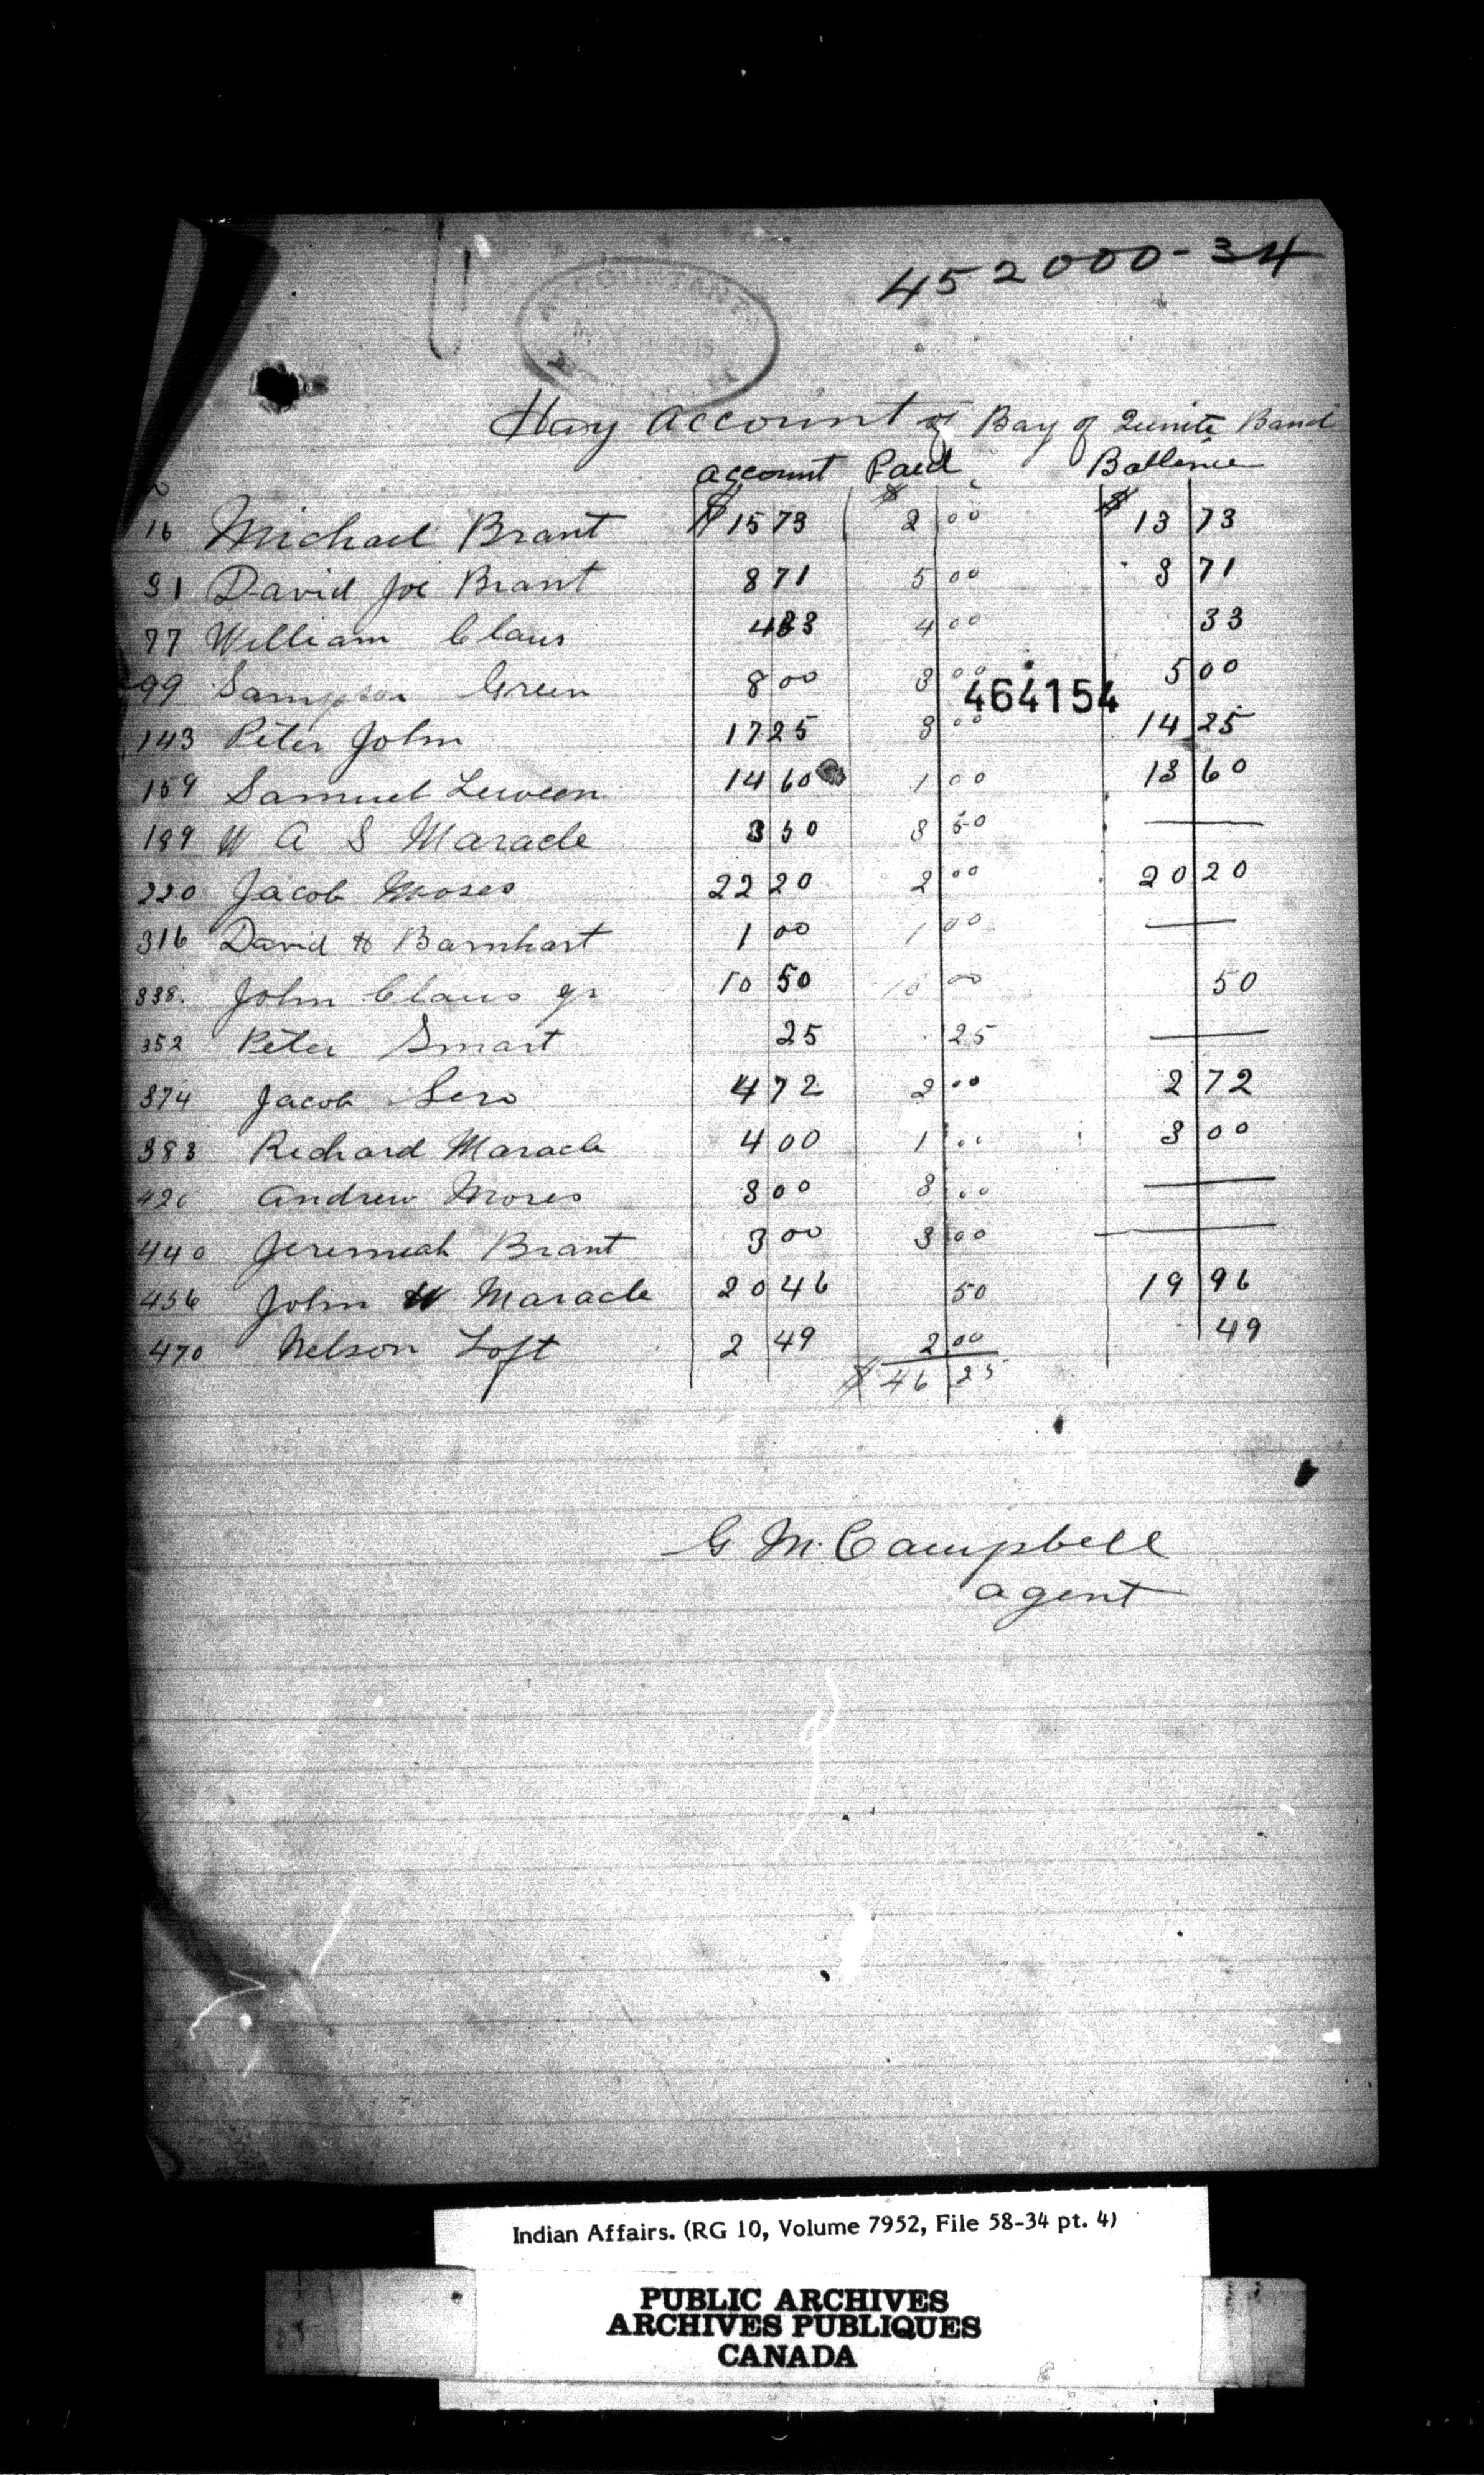 452000-34
ACCOUNTANT
Hay Account of Bay of Quinte Band
account Paid Ballence
16 Michael Brant $15 73 $2 00 $13 73
31 David Joe Brant 8 71 5 00 3 71
77 William Claus 4 33 4 00 33
99 Sampson Green 8 00 3 00 5 00
464154
143 Peter John 17 25 3 00 14 25
159 Samuel Leween 14 60 1 00 13 60
189 W A S Maracle 3 50 3 50 —
220 Jacob Moses 22 20 2 00 20 20
316 David H Barnhart 1 00 1 00 —
338. John Claus jr 10 50 10 00 50
352 Peter Smart 25 25 —
374 Jacob Sero 4 72 2 00 2 72
383 Richard Maracle 4 00 1 00 3 00
420 Andrew Moses 3 00 3 00 —
440 Jeremiah Brant 3 00 3 00 —
456 John W Maracle 20 46 50 19 96
470 Nelson Loft 2 49 2 00 49
$46 25
G M. Campbell
agent
Indian Affairs. (RG 10, Volume 7952, File 58-34 pt. 4)
PUBLIC ARCHIVES
ARCHIVES PUBLIQUES
CANADA